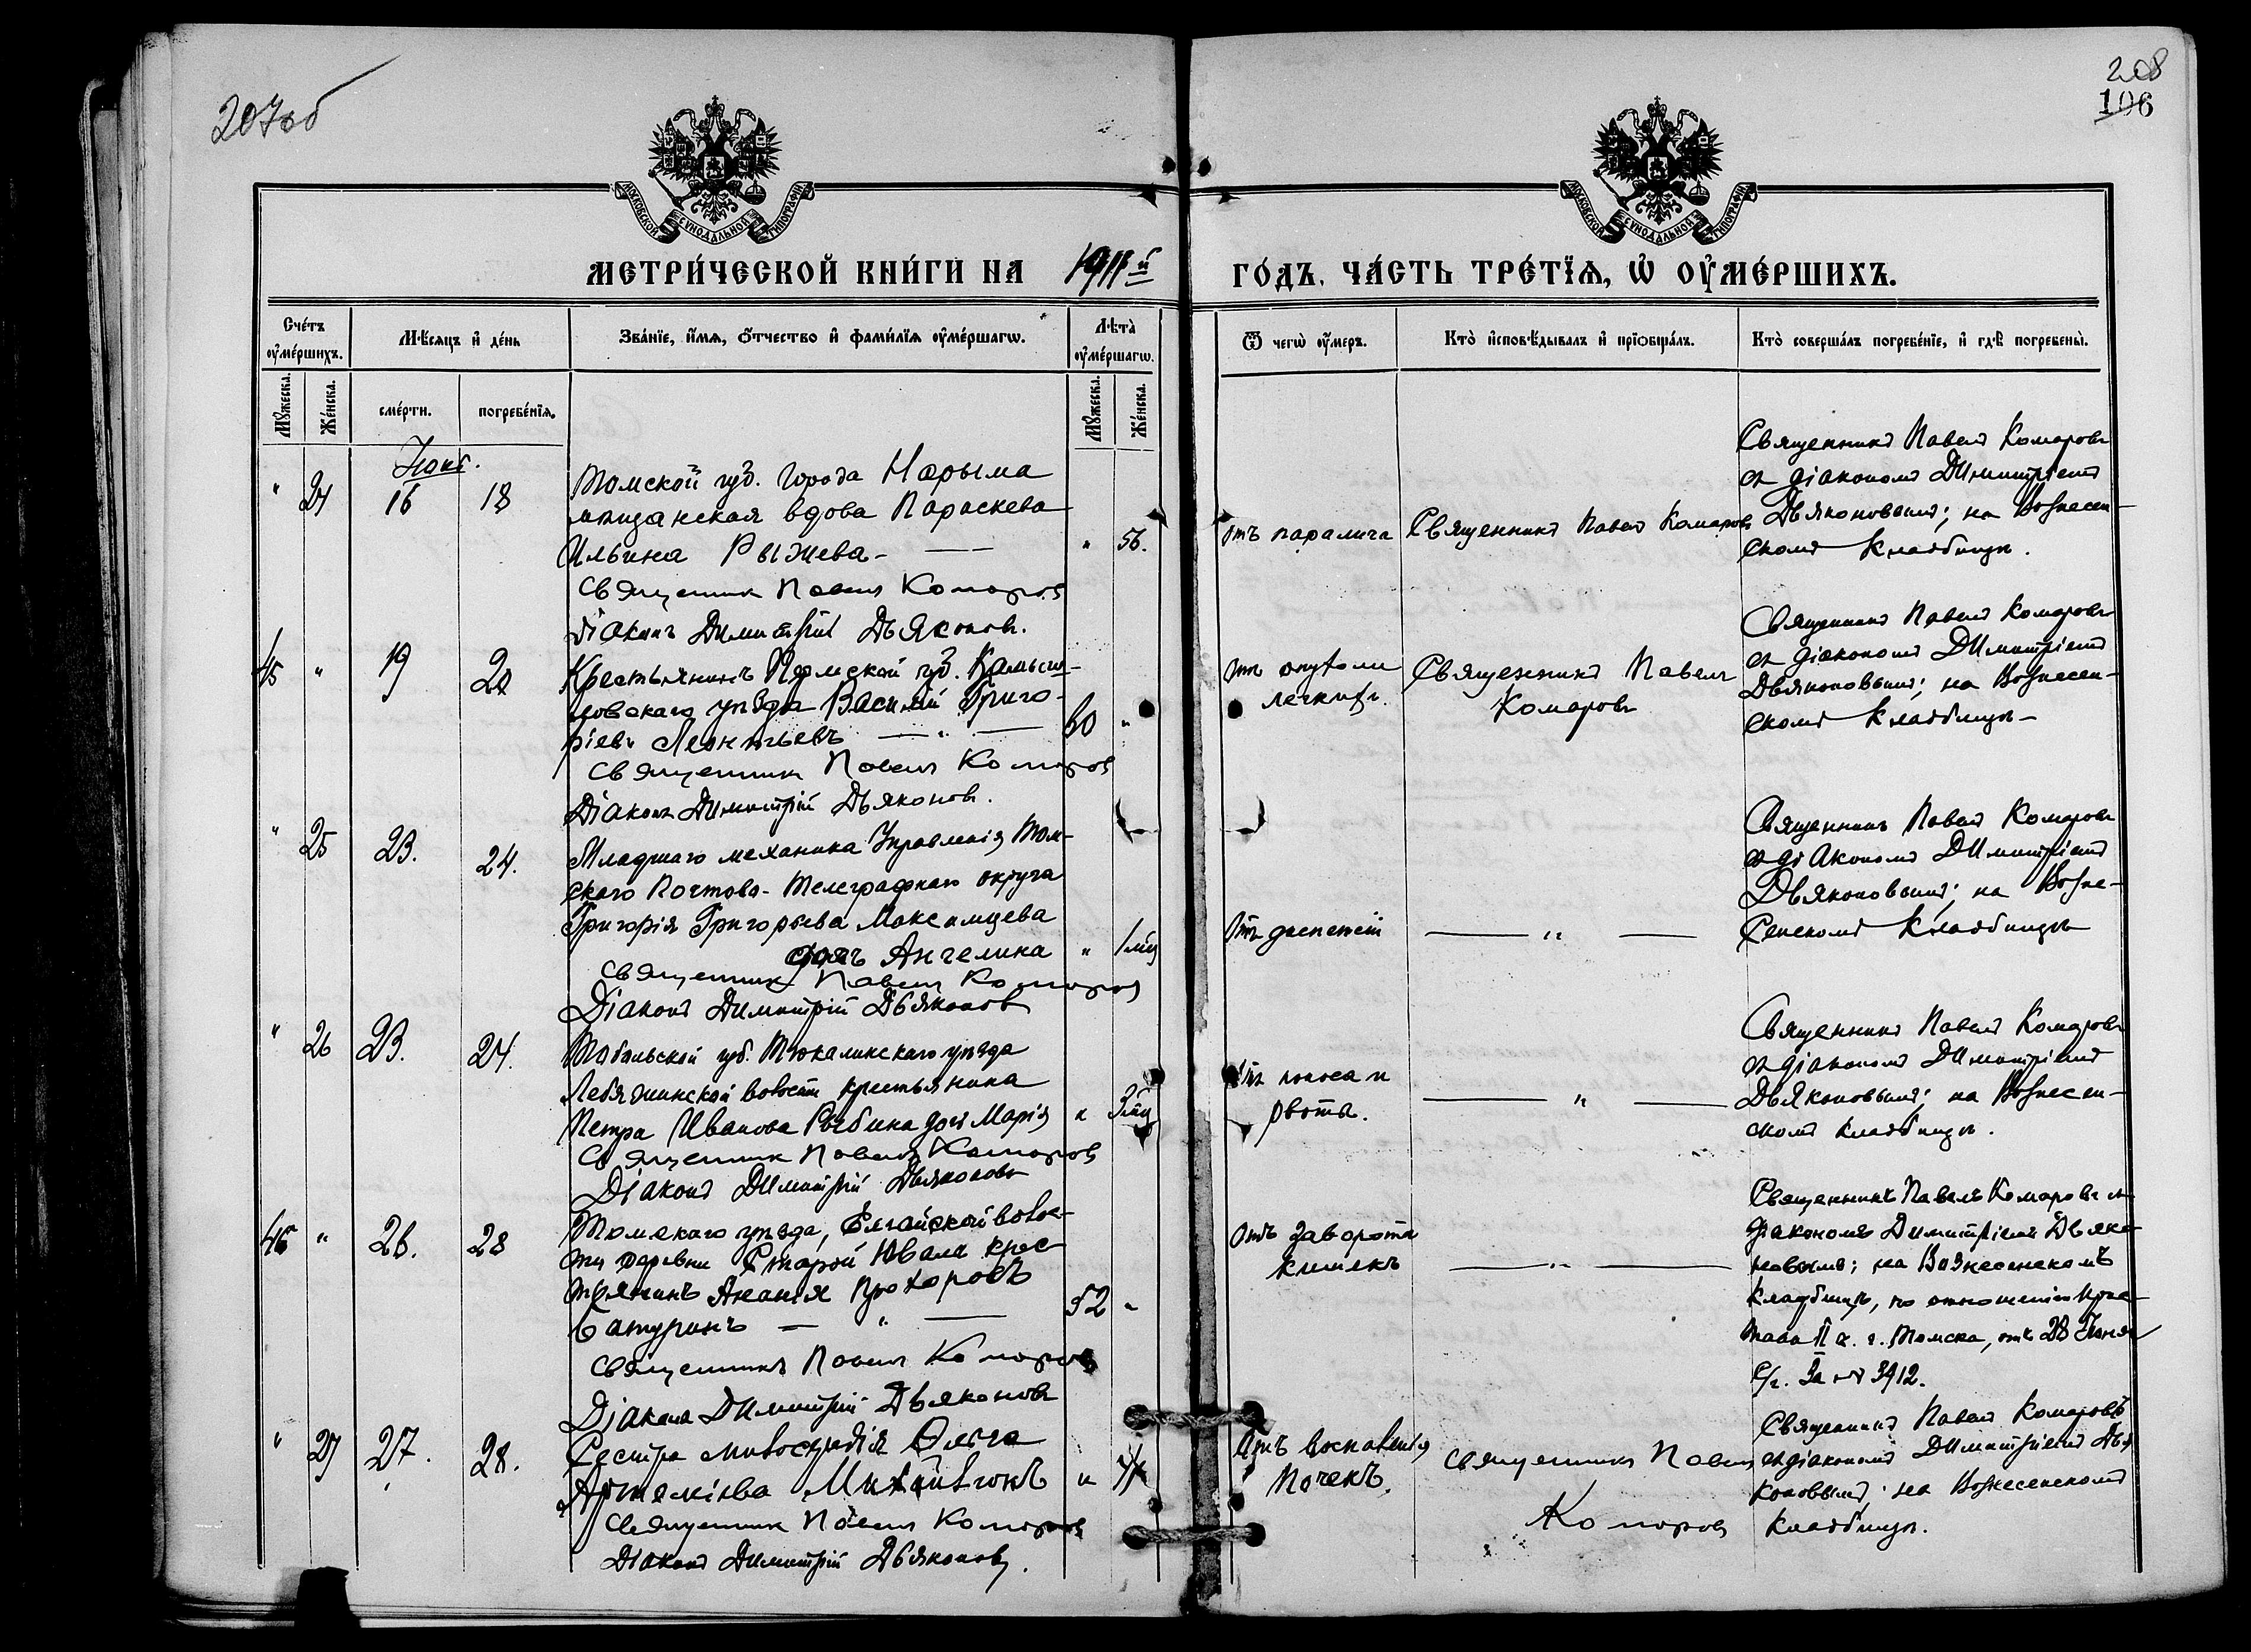 207об
208
106
МОСКОВСКОЙ СѴНОДАЛЬНОЙ ТИПОГРАФІИ
МОСКОВСКОЙ СѴНОДАЛЬНОЙ ТИПОГРАФІИ
МЕТРИ́ЧЕСКОЙ КНИ́ГИ НА 1911й ГО́ДЪ, ЧА́СТЬ ТРЕ́ТЇѦ, Ѡ҆ ОУ҆МЕ́РШИХЪ.
Сче́тъ оу҆ме́ршихъ.
Мѣ́сяцъ и҆ де́нь
Зва́нїе, и҆́мѧ, ѻ҆́тчество и҆ фами́лїѧ оу҆ме́ршагѡ.
Лѣта̀ оу҆ме́ршагѡ.
Ѿ чегѡ̀ оу҆́меръ.
Кто̀ и҆сповѣ́дывалъ и҆ прїѡбща́лъ.
Кто̀ соверша́лъ погребе́нїе, и҆ гдѣ̀ погребены̀.
Мꙋ́жеска.
Же́нска.
сме́рти.
погребе́нїѧ.
Мꙋ́жеска.
Же́нска.
Іюнь.
" 24 16 18
Томской губ. города Нарыма
мѣщанская вдова Параскева
Ильина Рыжева - — " 56.
Священникъ Павелъ Комаровъ
Діаконъ Димитрій Дьяконовъ.
отъ паралича
Священникъ Павелъ Комаровъ
Священникъ Павелъ Комаровъ
съ діакономъ Димитріемъ
Дьяконовымъ; на Вознесен-
скомъ кладбищѣ.
45 " 19 20
Крестьянинъ Пермской губ. Камыш-
ловскаго уѣзда Василій Григо-
ріевъ Леонтьевъ — " — 60 "
Священникъ Павелъ Комаровъ
Діаконъ Димитрій Дьяконовъ.
отъ опухоли
легкихъ.
Священникъ Павелъ
Комаровъ
Священникъ Павелъ Комаровъ
съ діакономъ Димитріемъ
Дьяконовымъ; на Вознесен-
скомъ кладбищѣ -
" 25 23. 24.
Младшаго механика Управленія Том-
скаго Почтово-Телеграфнаго округа
Григорія Григорьева Максимцева
дочь Ангелина " 1 мѣц
Священникъ Павелъ Комаровъ
Діаконъ Димитрій Дьяконовъ
Отъ диспепсіи
— " —
Священникъ Павелъ Комаровъ
съ діакономъ Димитріемъ
Дьяконовымъ; на Возне-
сенскомъ кладбищѣ
" 26 23. 24.
Тобольской губ. Тюкалинскаго уѣзда
Лебяжинской волости крестьянина
Петра Иванова Рыбина дочь Марія " 3 мѣц
Священникъ Павелъ Комаровъ
Діаконъ Димитрій Дьяконовъ
Отъ поноса и
рвоты.
— " —
Священникъ Павелъ Комаровъ
съ діакономъ Димитріемъ
Дьяконовымъ; на Вознесен-
скомъ кладбищѣ.
46 " 26. 28
Томскаго уѣзда, Елгайской волос-
ти деревни Старой Ювалы крес-
тьянинъ Ананія Прохоровъ
Батуринъ — " — 52 "
Священникъ Павелъ Комаровъ
Діаконъ Димитрій Дьяконовъ
Отъ заворота
кишекъ
— " —
Священникъ Павелъ Комаровъ съ
діакономъ Димитріемъ Дьяко-
новымъ; на Вознесенскомъ
кладбищѣ, по отношенію при-
става II ч. г. Томска, отъ 28 Іюня
с/г. За № 3912.
" 27 27. 28.
Сестра милосердія Ольга
Артемьева "
Священникъ Павелъ Комаровъ
Діаконъ Димитрій Дьяконовъ.
Отъ воспаленія
почекъ.
Священникъ Павелъ
Комаровъ
Священникъ Павелъ Комаровъ
съ діакономъ Димитріемъ Дья
коновымъ; на Вознесенскомъ
кладбищѣ.